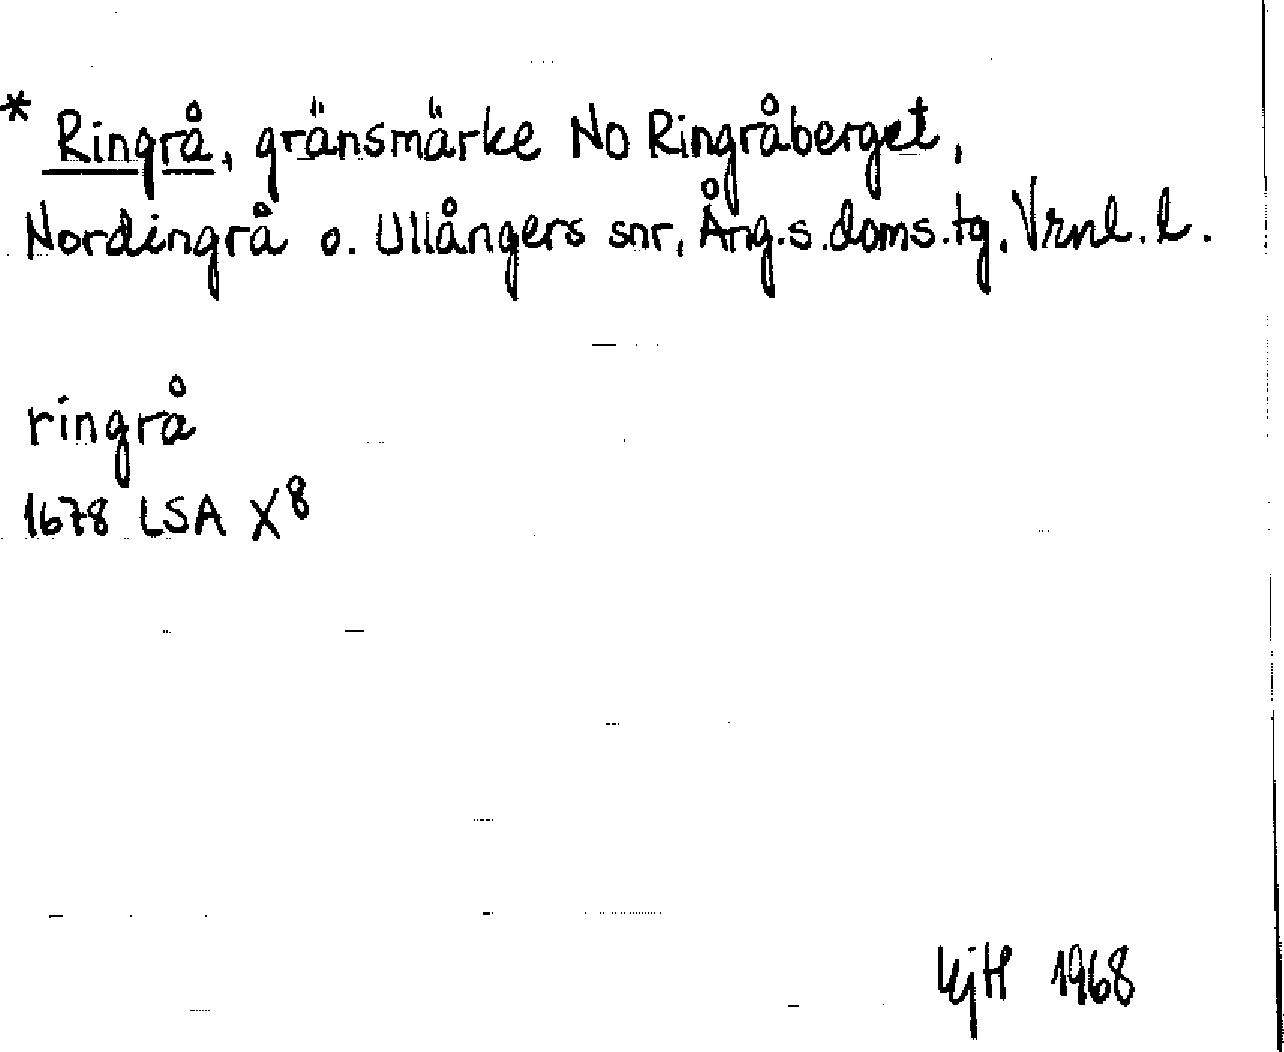 * Ringrå, gränsmärke NO Ringråberget,
Nordingrå o. Ullångers snr, Ång.s.doms.tg. Vrnl. l.
ringrå
1678 LSA X⁸
KjH 1968